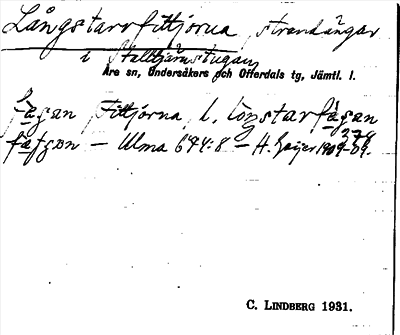 Långstarrfittjorna, strandängar
i Stalltjärnstugan
Åre sn, Undersåkers och Offerdals tg, Jämtl. l.
fågan Fittjorna, l. lönstarfågan
— Ulma 644:8 — H. Geijer 1909-09.
C. LINDBERG 1931.